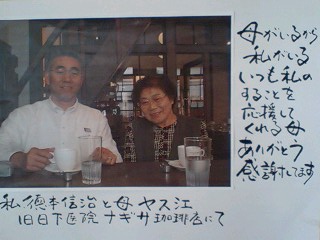 母がいるから
私がいる
いつも私の
することを
応援して
くれる母
ありがとう
感謝してます
私 德本信治と母 ヤス江
旧日下医院 ナギサ珈琲店にて